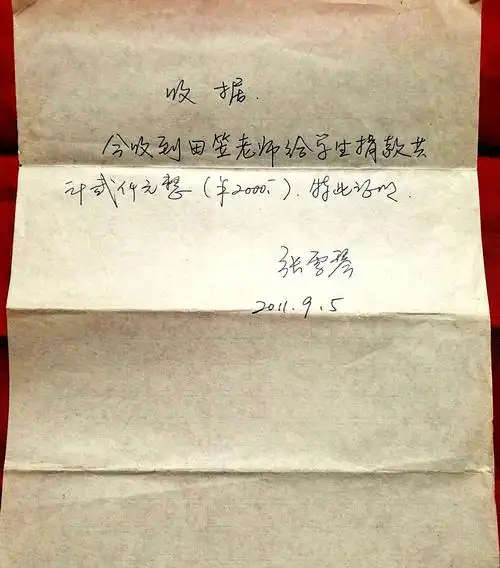 收据.
今收到田笠老师给学生捐款共
计贰仟元整(¥2000元).特此证明.
张雪琴
2011.9.5